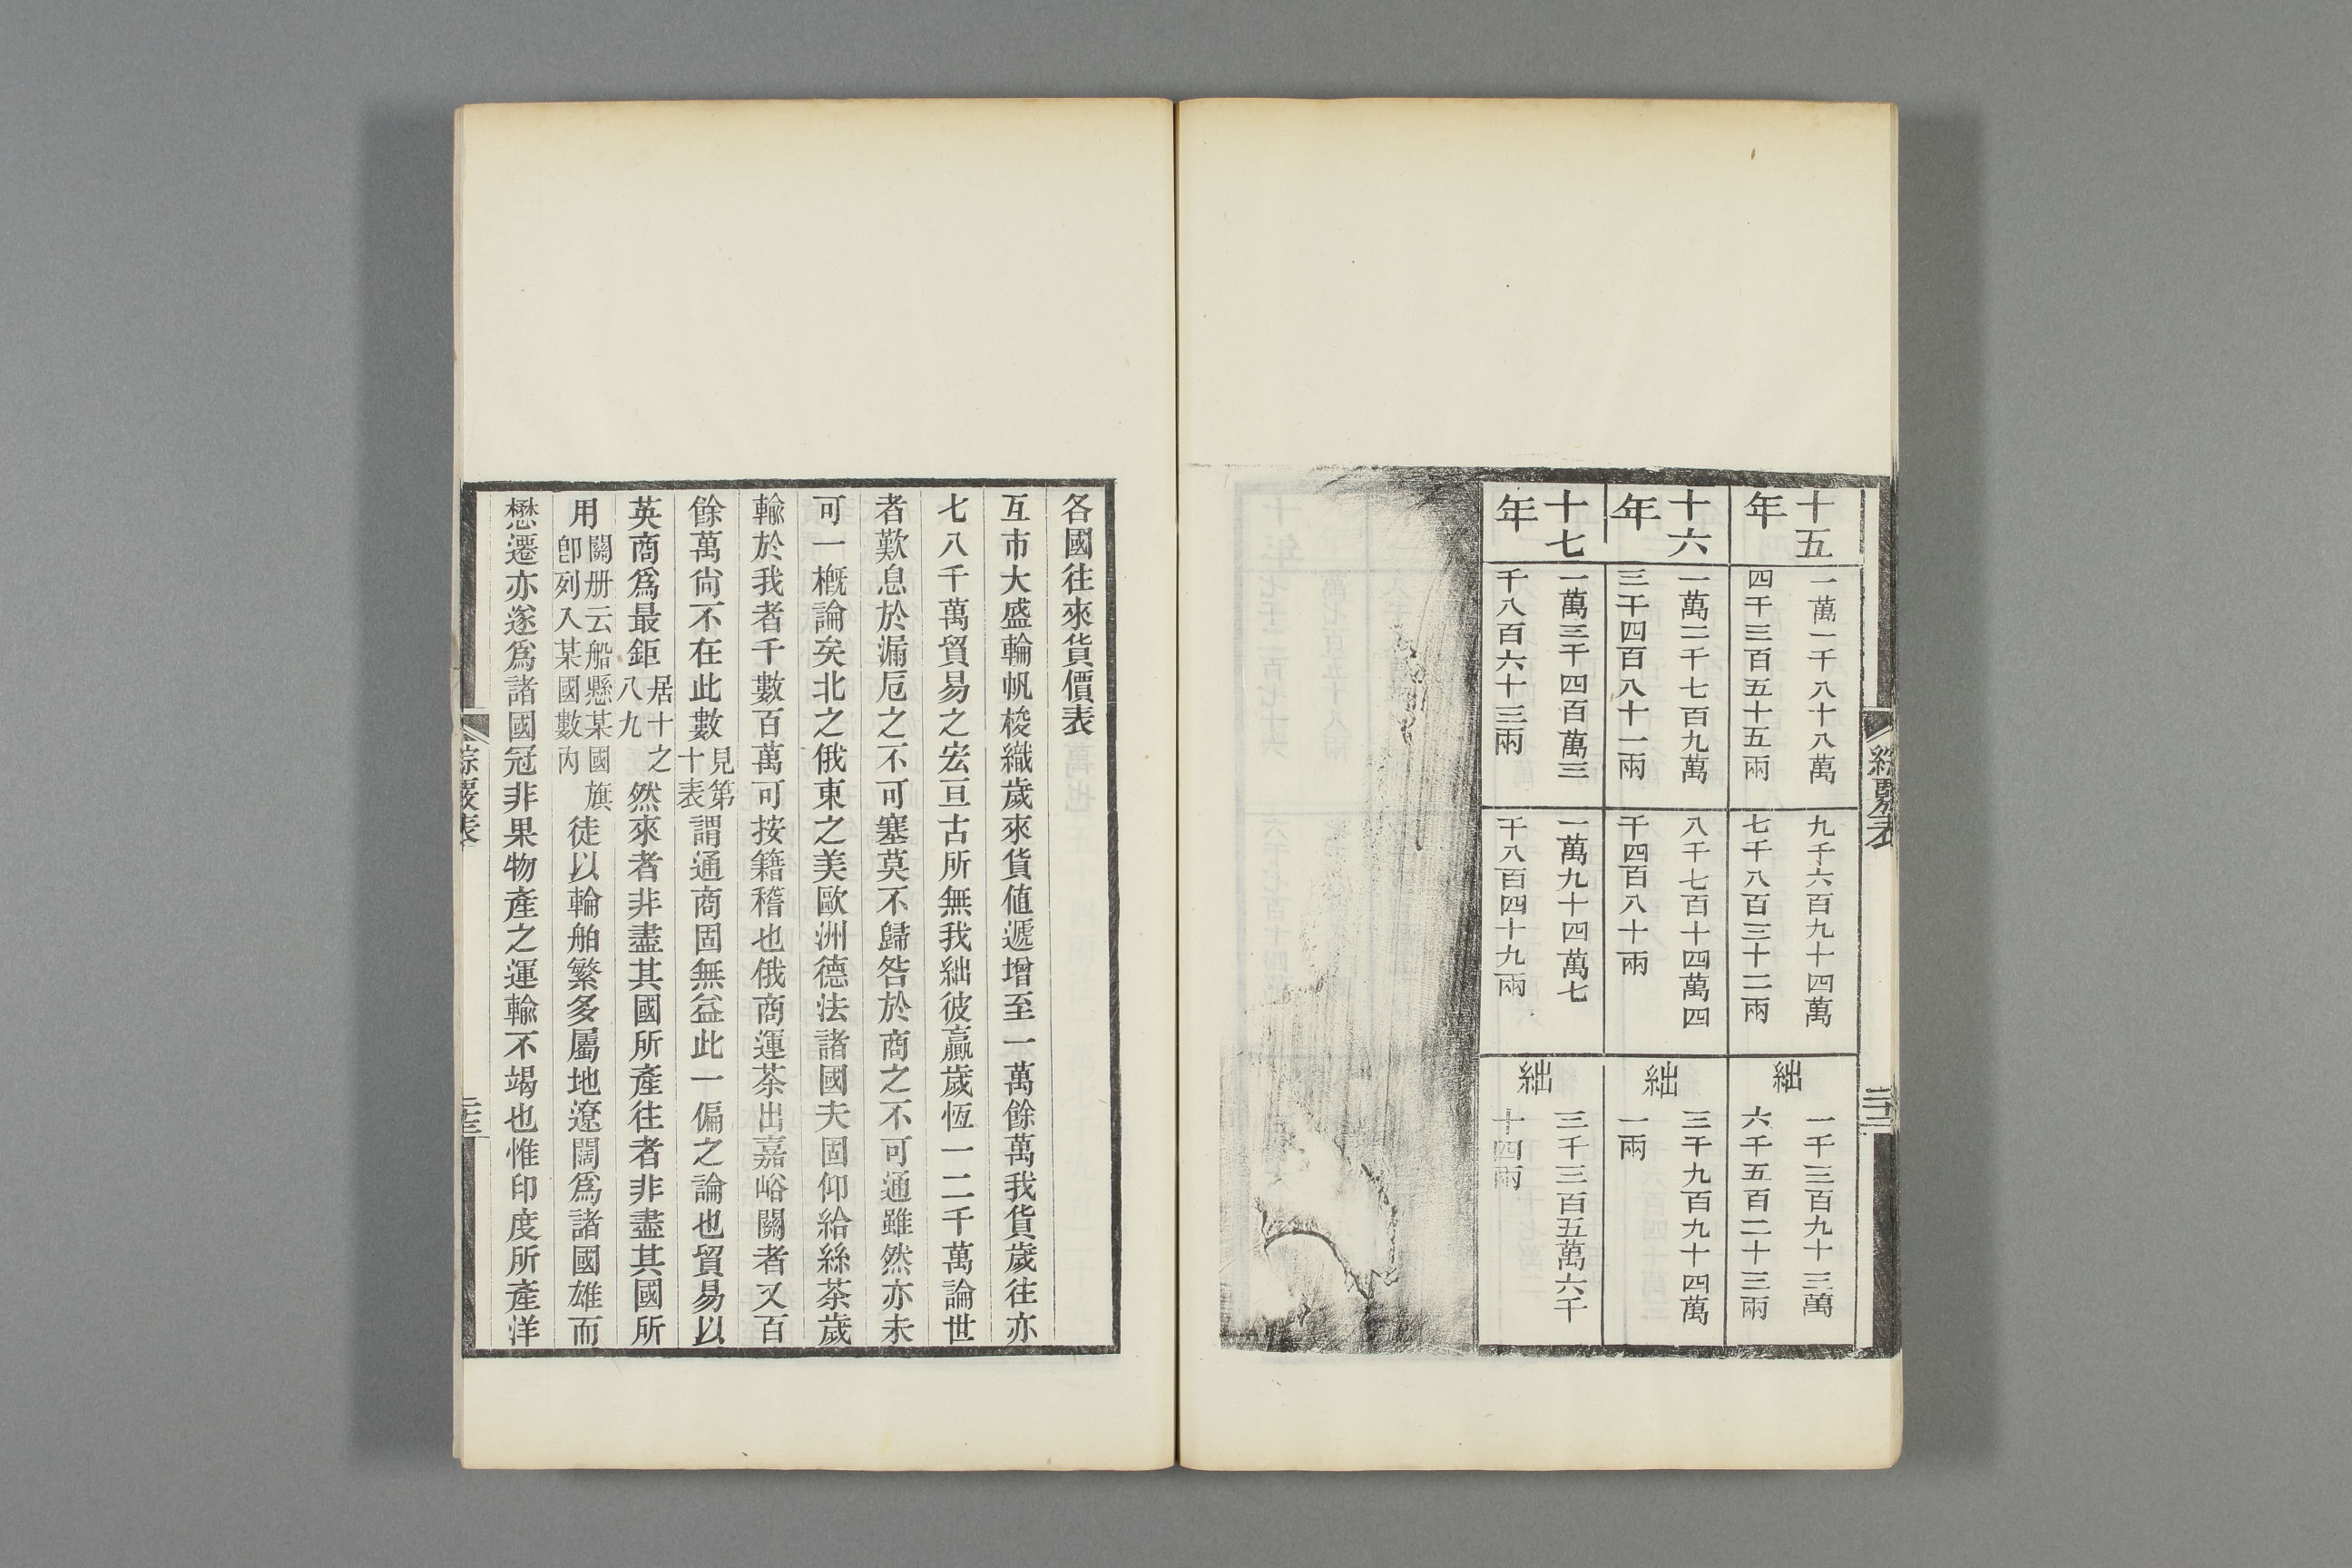 綜覈表
二十二
十五
年
一萬一千八十八萬
四千三百五十五兩
九千六百九十四萬
七千八百三十二兩
絀
一千三百九十三萬
六千五百二十三兩
十六
年
一萬二千七百九萬
三千四百八十一兩
八千七百十四萬四
千四百八十兩
絀
三千九百九十四萬
一兩
十七
年
一萬三千四百萬三
千八百六十三兩
一萬九十四萬七
千八百四十九兩
絀
三千三百五萬六千
十四兩
各國往來貨價表
互市大盛輪帆梭織歲來貨值遞增至一萬餘萬我貨歲往亦
七八千萬貿易之宏亘古所無我絀彼贏歲恆一二千萬論世
者歎息於漏卮之不可塞莫不歸咎於商之不可通雖然亦未
可一槪論矣北之俄東之美歐洲德法諸國夫固仰給絲茶歲
輸於我者千數百萬可按籍稽也俄商運茶出嘉峪關者又百
餘萬尙不在此數見第十表謂通商固無益此一偏之論也貿易以
英商爲最鉅居十之八九然來者非盡其國所產往者非盡其國所
用關册云船懸某國旗卽列入某國數內徒以輪舶繁多屬地遼闊爲諸國雄而
懋遷亦遂爲諸國冠非果物產之運輸不竭也惟印度所產洋
綜覈表
二十三